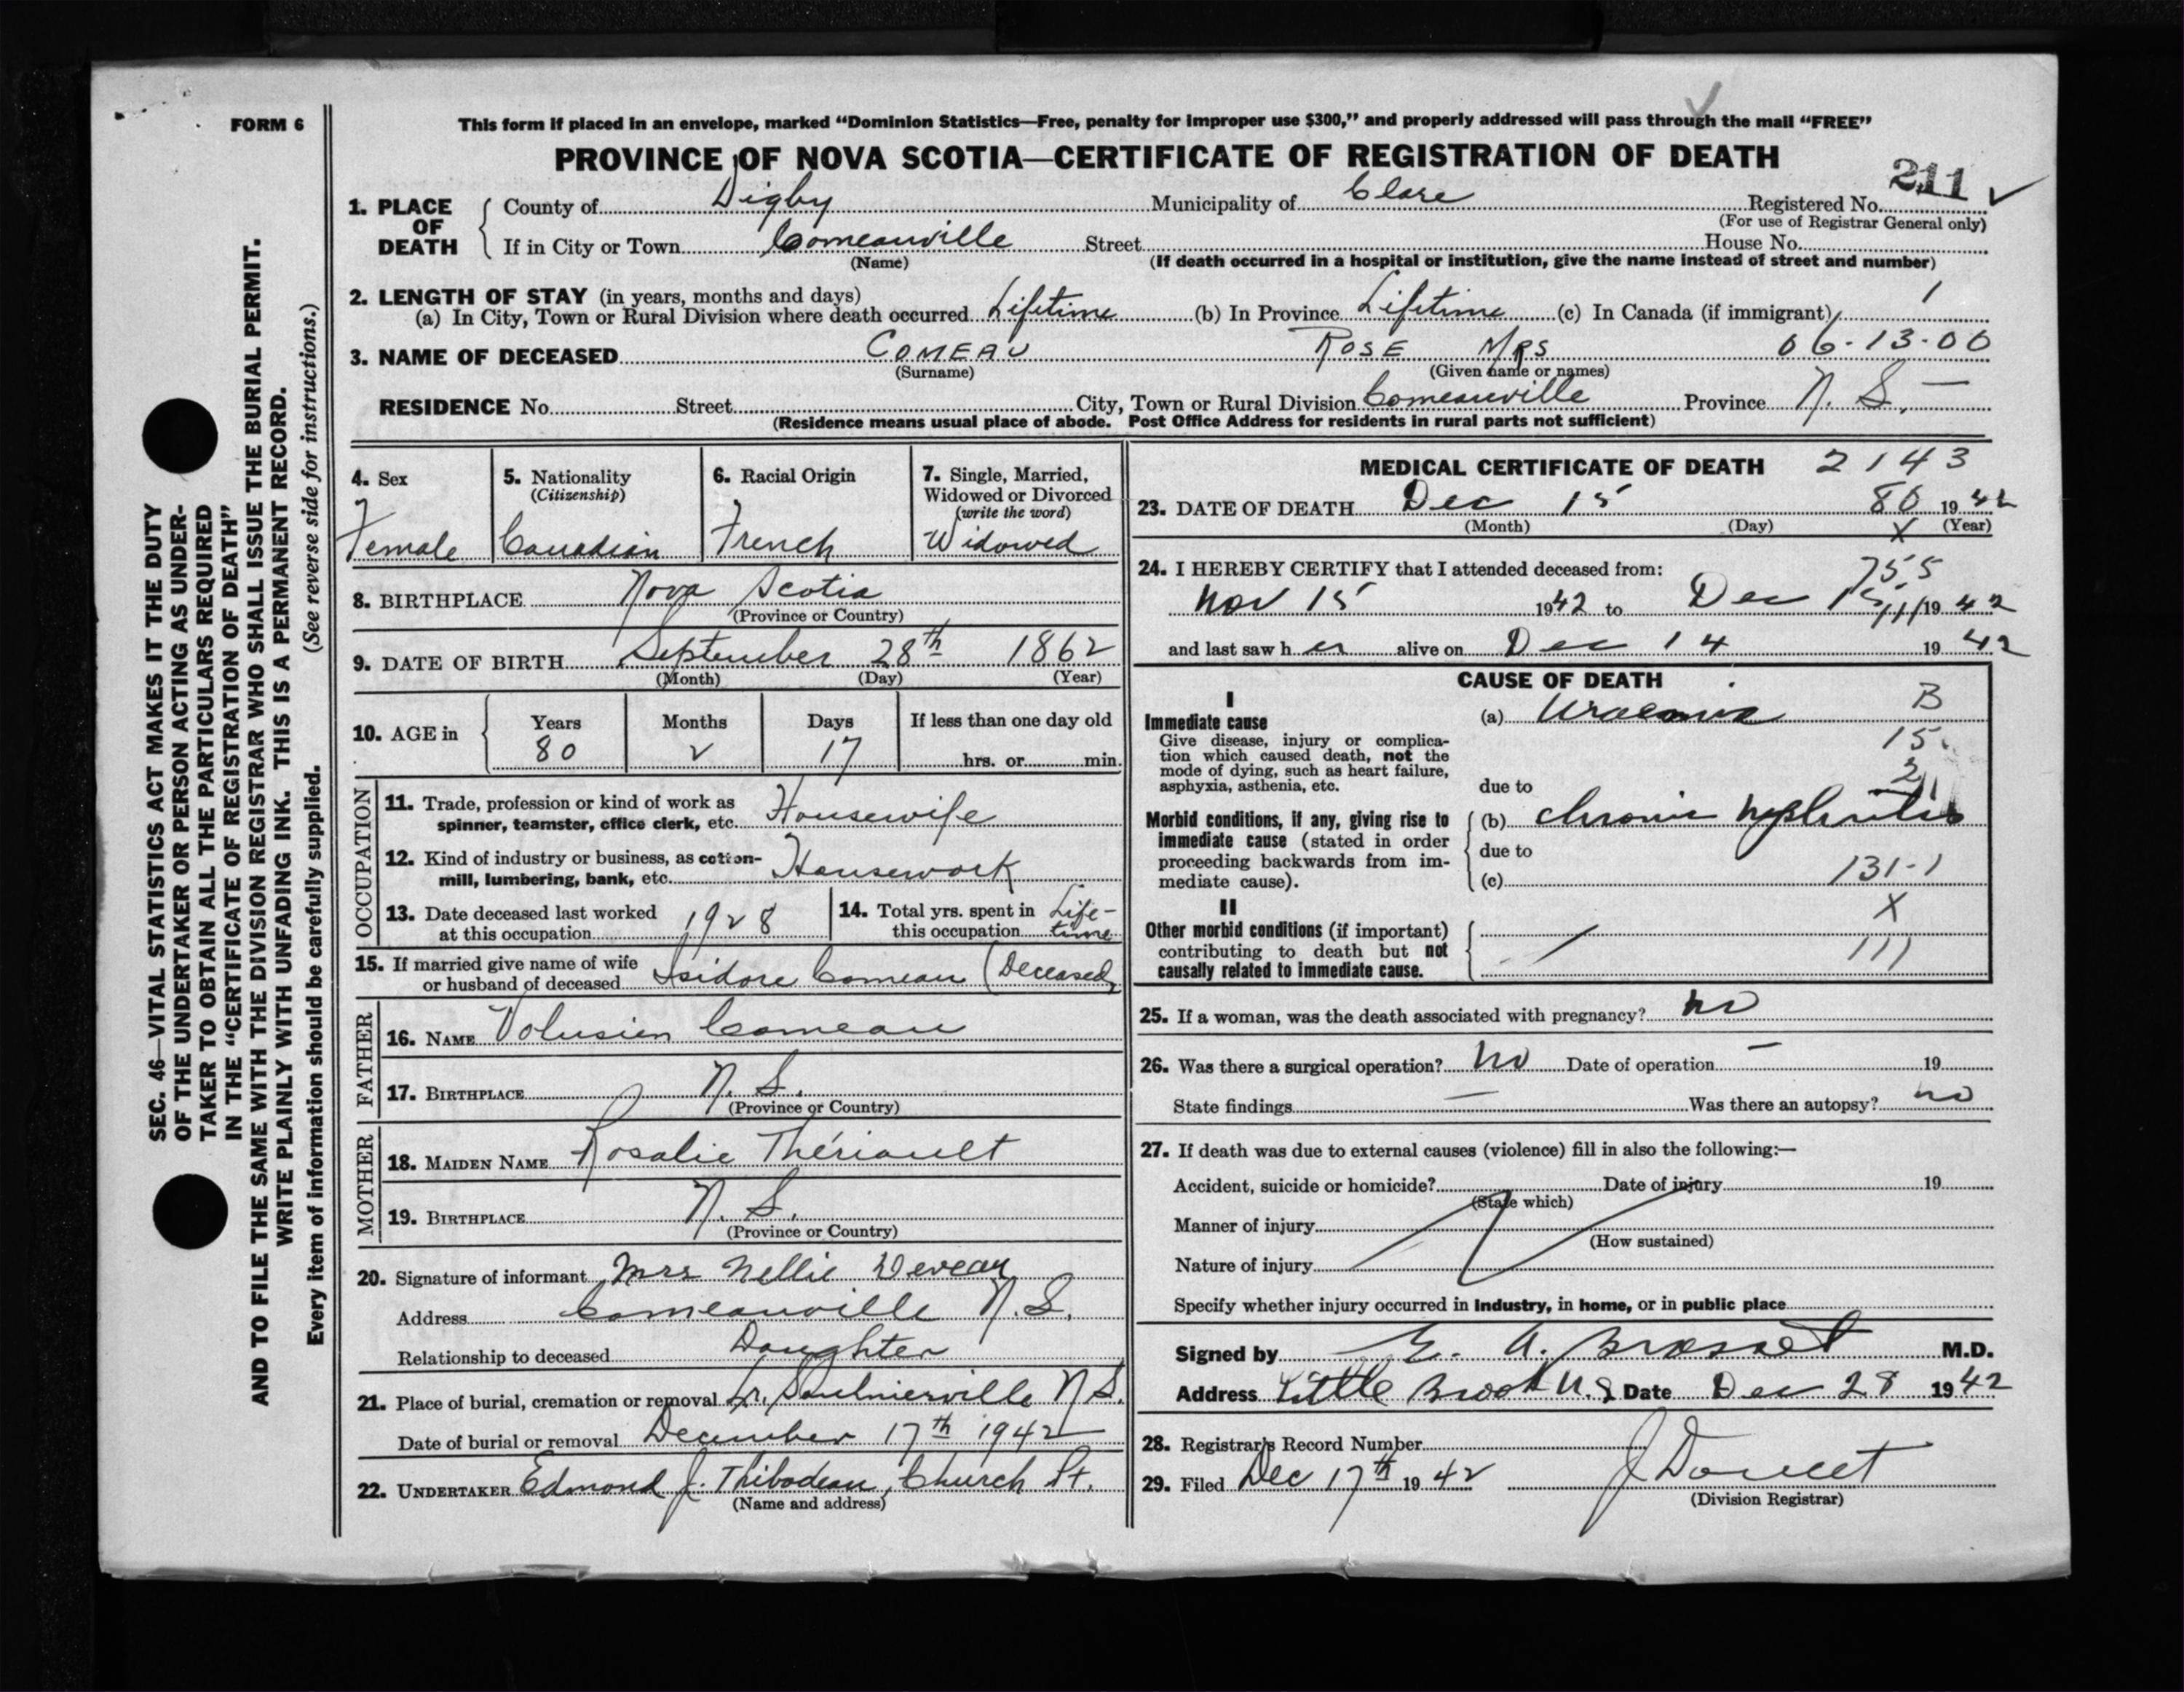 FORM 6
This form if placed in an envelope, marked "Dominion Statistics—Free, penalty for improper use $300," and properly addressed will pass through the mail "FREE"
PROVINCE OF NOVA SCOTIA—CERTIFICATE OF REGISTRATION OF DEATH
211
1. PLACE OF DEATH
County of Digby Municipality of Clare Registered No.
(For use of Registrar General only)
If in City or Town Comeauville Street House No.
(Name) (If death occurred in a hospital or institution, give the name instead of street and number)
2. LENGTH OF STAY (in years, months and days)
(a) In City, Town or Rural Division where death occurred Lifetime (b) In Province Lifetime (c) In Canada (if immigrant)
3. NAME OF DECEASED COMEAU ROSE MRS 06-13-06
(Surname) (Given name or names)
RESIDENCE No. Street City, Town or Rural Division Comeauville Province N. S.
(Residence means usual place of abode. Post Office Address for residents in rural parts not sufficient)
SEC. 46—VITAL STATISTICS ACT MAKES IT THE DUTY
OF THE UNDERTAKER OR PERSON ACTING AS UNDER-
TAKER TO OBTAIN ALL THE PARTICULARS REQUIRED
IN THE "CERTIFICATE OF REGISTRATION OF DEATH"
AND TO FILE THE SAME WITH THE DIVISION REGISTRAR WHO SHALL ISSUE THE BURIAL PERMIT.
WRITE PLAINLY WITH UNFADING INK. THIS IS A PERMANENT RECORD.
Every item of information should be carefully supplied. (See reverse side for instructions.)
4. Sex
Female
5. Nationality
(Citizenship)
Canadian
6. Racial Origin
French
7. Single, Married,
Widowed or Divorced
(write the word)
Widowed
8. BIRTHPLACE Nova Scotia
(Province or Country)
9. DATE OF BIRTH September 28th 1862
(Month) (Day) (Year)
10. AGE in
Years Months Days If less than one day old
80 2 17 hrs. or min.
OCCUPATION
11. Trade, profession or kind of work as
spinner, teamster, office clerk, etc. Housewife
12. Kind of industry or business, as cotton-
mill, lumbering, bank, etc. Housework
13. Date deceased last worked
at this occupation 1928
14. Total yrs. spent in
this occupation Life-
time
15. If married give name of wife
or husband of deceased Isidore Comeau (Deceased)
FATHER
16. NAME Volusien Comeau
17. BIRTHPLACE N. S.
(Province or Country)
MOTHER
18. MAIDEN NAME Rosalie Thériault
19. BIRTHPLACE N. S.
(Province or Country)
20. Signature of informant Mrs Nellie Deveau
Address Comeauville N.S.
Relationship to deceased Daughter
21. Place of burial, cremation or removal Lr. Saulnierville N S.
Date of burial or removal December 17th 1942
22. UNDERTAKER Edmond J. Thibodeau, Church Pt.
(Name and address)
MEDICAL CERTIFICATE OF DEATH 2143
23. DATE OF DEATH Dec 15 80 1942
(Month) (Day) X (Year)
24. I HEREBY CERTIFY that I attended deceased from: 755
Nov 15 1942 to Dec 15 1942
and last saw her alive on Dec 14 1942
CAUSE OF DEATH
I
Immediate cause
Give disease, injury or complica-
tion which caused death, not the
mode of dying, such as heart failure,
asphyxia, asthenia, etc.
(a) Uraemia B
15
due to
Morbid conditions, if any, giving rise to
immediate cause (stated in order
proceeding backwards from im-
mediate cause).
(b) chronic nephritis
due to
(c) 131-1
X
II
Other morbid conditions (if important)
contributing to death but not
causally related to immediate cause.
111
25. If a woman, was the death associated with pregnancy? no
26. Was there a surgical operation? no Date of operation – 19
State findings — Was there an autopsy? no
27. If death was due to external causes (violence) fill in also the following:—
Accident, suicide or homicide? Date of injury 19
(State which)
Manner of injury
(How sustained)
Nature of injury
Specify whether injury occurred in industry, in home, or in public place
Signed by E. A. Brasset M.D.
Address Little Brook N.S Date Dec 28 1942
28. Registrar's Record Number
29. Filed Dec 17th 1942 J Doucet
(Division Registrar)